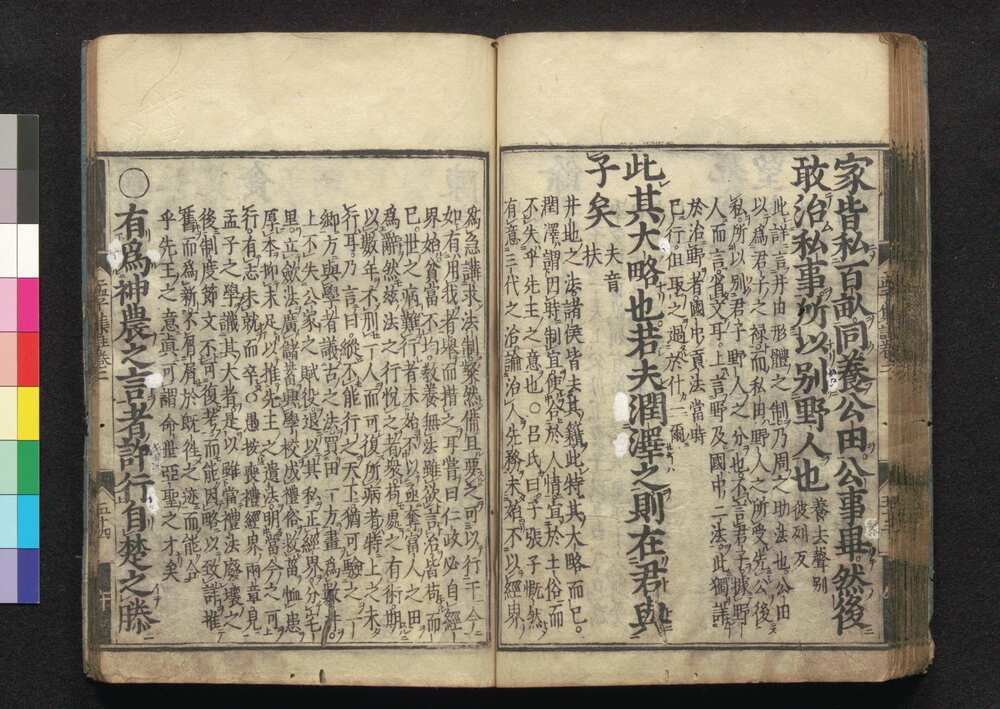 家皆私百畝同養公田公事畢然後
敢治私事所以別野人也 養去聲別
彼列反
此詳言井田形體之制乃周之助法也公田
以爲君子之祿而私田野人之所受先公後
私所以別君子野人之分也不言君子據野
人而言省文耳上言野及國中二法此獨詳
於治野者國中貢法當時
已行但取之過於什一爾
此其大略也若夫潤澤之則在君與
子矣 夫音
扶
井地之法諸侯皆去其籍此特其大略而已
潤澤謂因時制宜使合於人情宜於土俗而
不失乎先王之意也。呂氏曰子張子慨然
有意三代之治論治人先務未始不以經界
爲急講求法制粲然備具要之可以行于今
如有用我者擧而措之耳嘗曰仁政必自經
界始貧富不均教養無法雖欲言治皆苟而
已世之病難行者未始不以亟奪富人之田
爲辭然茲法之行悅之者衆苟處之有術期
以數年不刑一人而可復所病者特上之未
行耳乃言曰縱不能行之天下猶可驗之一
鄕方與學者議古之法買田一方畫爲數井
上不失公家之賦役退以其私正經界分宅
里立斂法廣儲蓄興學校成禮俗救菑恤患
厚本抑末足以推先王之遺法明當今之可
行有志未就而卒。愚按喪禮經界兩章見
孟子之學識其大者是以雖當禮法廢壞之
後制度節文不可復考而能因略以致詳推
舊而爲新不屑屑於既往之迹而能合
乎先王之意眞可謂命世亞聖之才矣
○有爲神農之言者許行自楚之滕